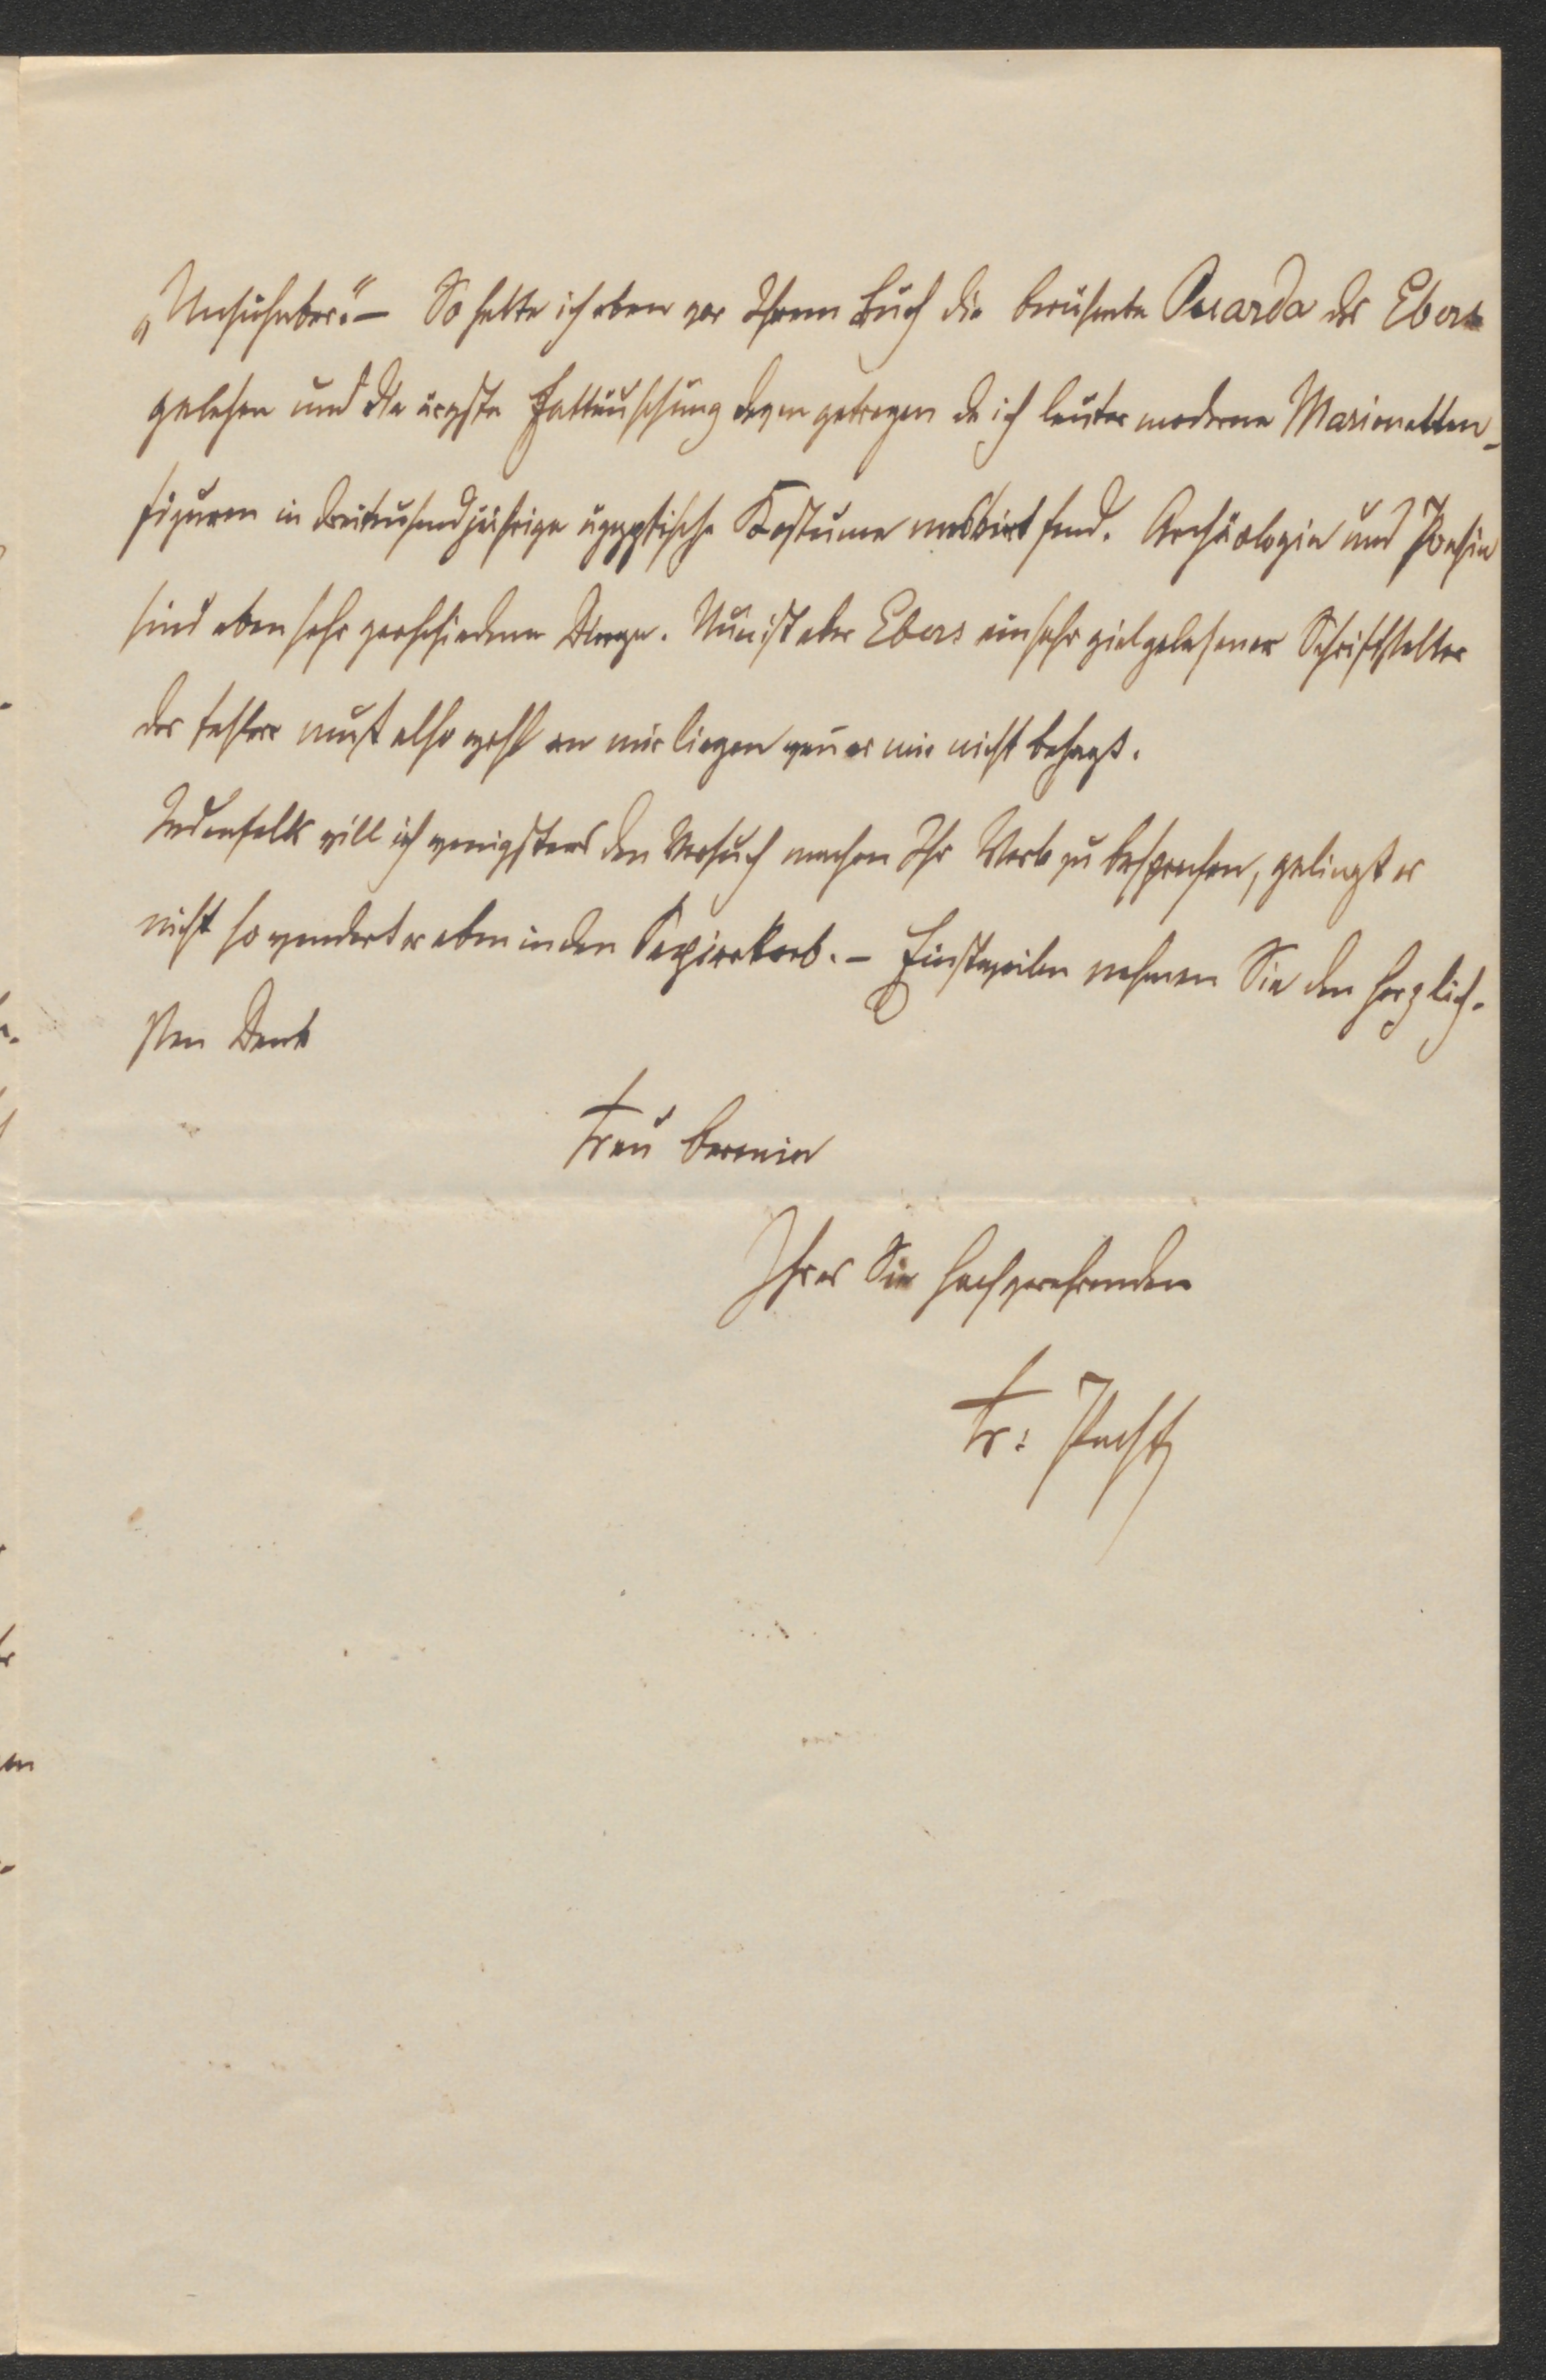 „Unsühnbar.“ — So hatte ich eben vor Ihrem Buch die berühmte Uarda des Ebers
gelesen und die ärgste Enttäuschung davon getragen da ich lauter moderne Marionetten-
figuren in dreitausendjährige ägyptische Kostüme maskirt fand. Archäologie und Poesie
sind eben sehr verschiedene Dinge. Nun ist aber Ebers ein sehr vielgelesener Schriftsteller
der Fehler muß also wohl an mir liegen wenn er mir nicht behagt.
Jedenfalls will ich wenigstens den Versuch machen Ihr Werk zu besprechen, gelingt er
nicht so wandert er eben in den Papierkorb. — Einstweilen nehmen Sie den herzlich-
sten Dank
Frau Baronin
Ihres Sie hochverehrenden
Fr: Pecht